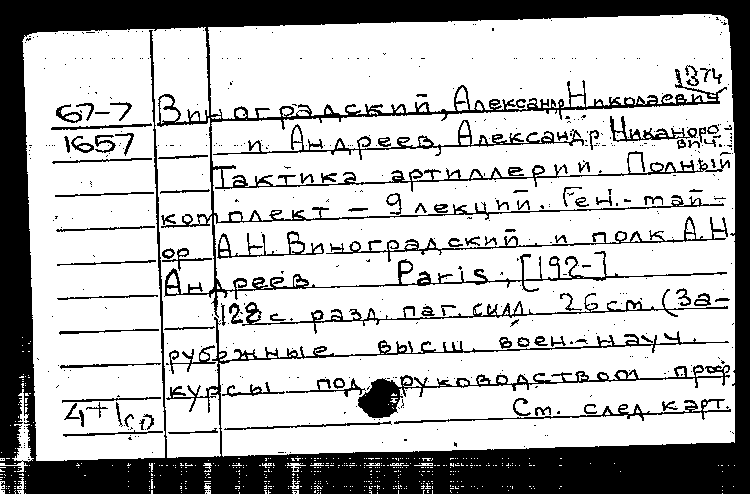 1874
67-7 Виноградский, Александр Николаевич
1657 и Андреев, Александр Никаноро-
вич.
Тактика артиллерии. Полный
комплект – 9 лекций. Ген.-май-
ор А.Н. Виноградский и полк. А.Н.
Андреев. Paris, [192-].
128 с. разд. паг. илл. 26 см. (За-
рубежные высш. воен.-науч.
курсы под руководством проф.
4+1 Ст. след. карт.